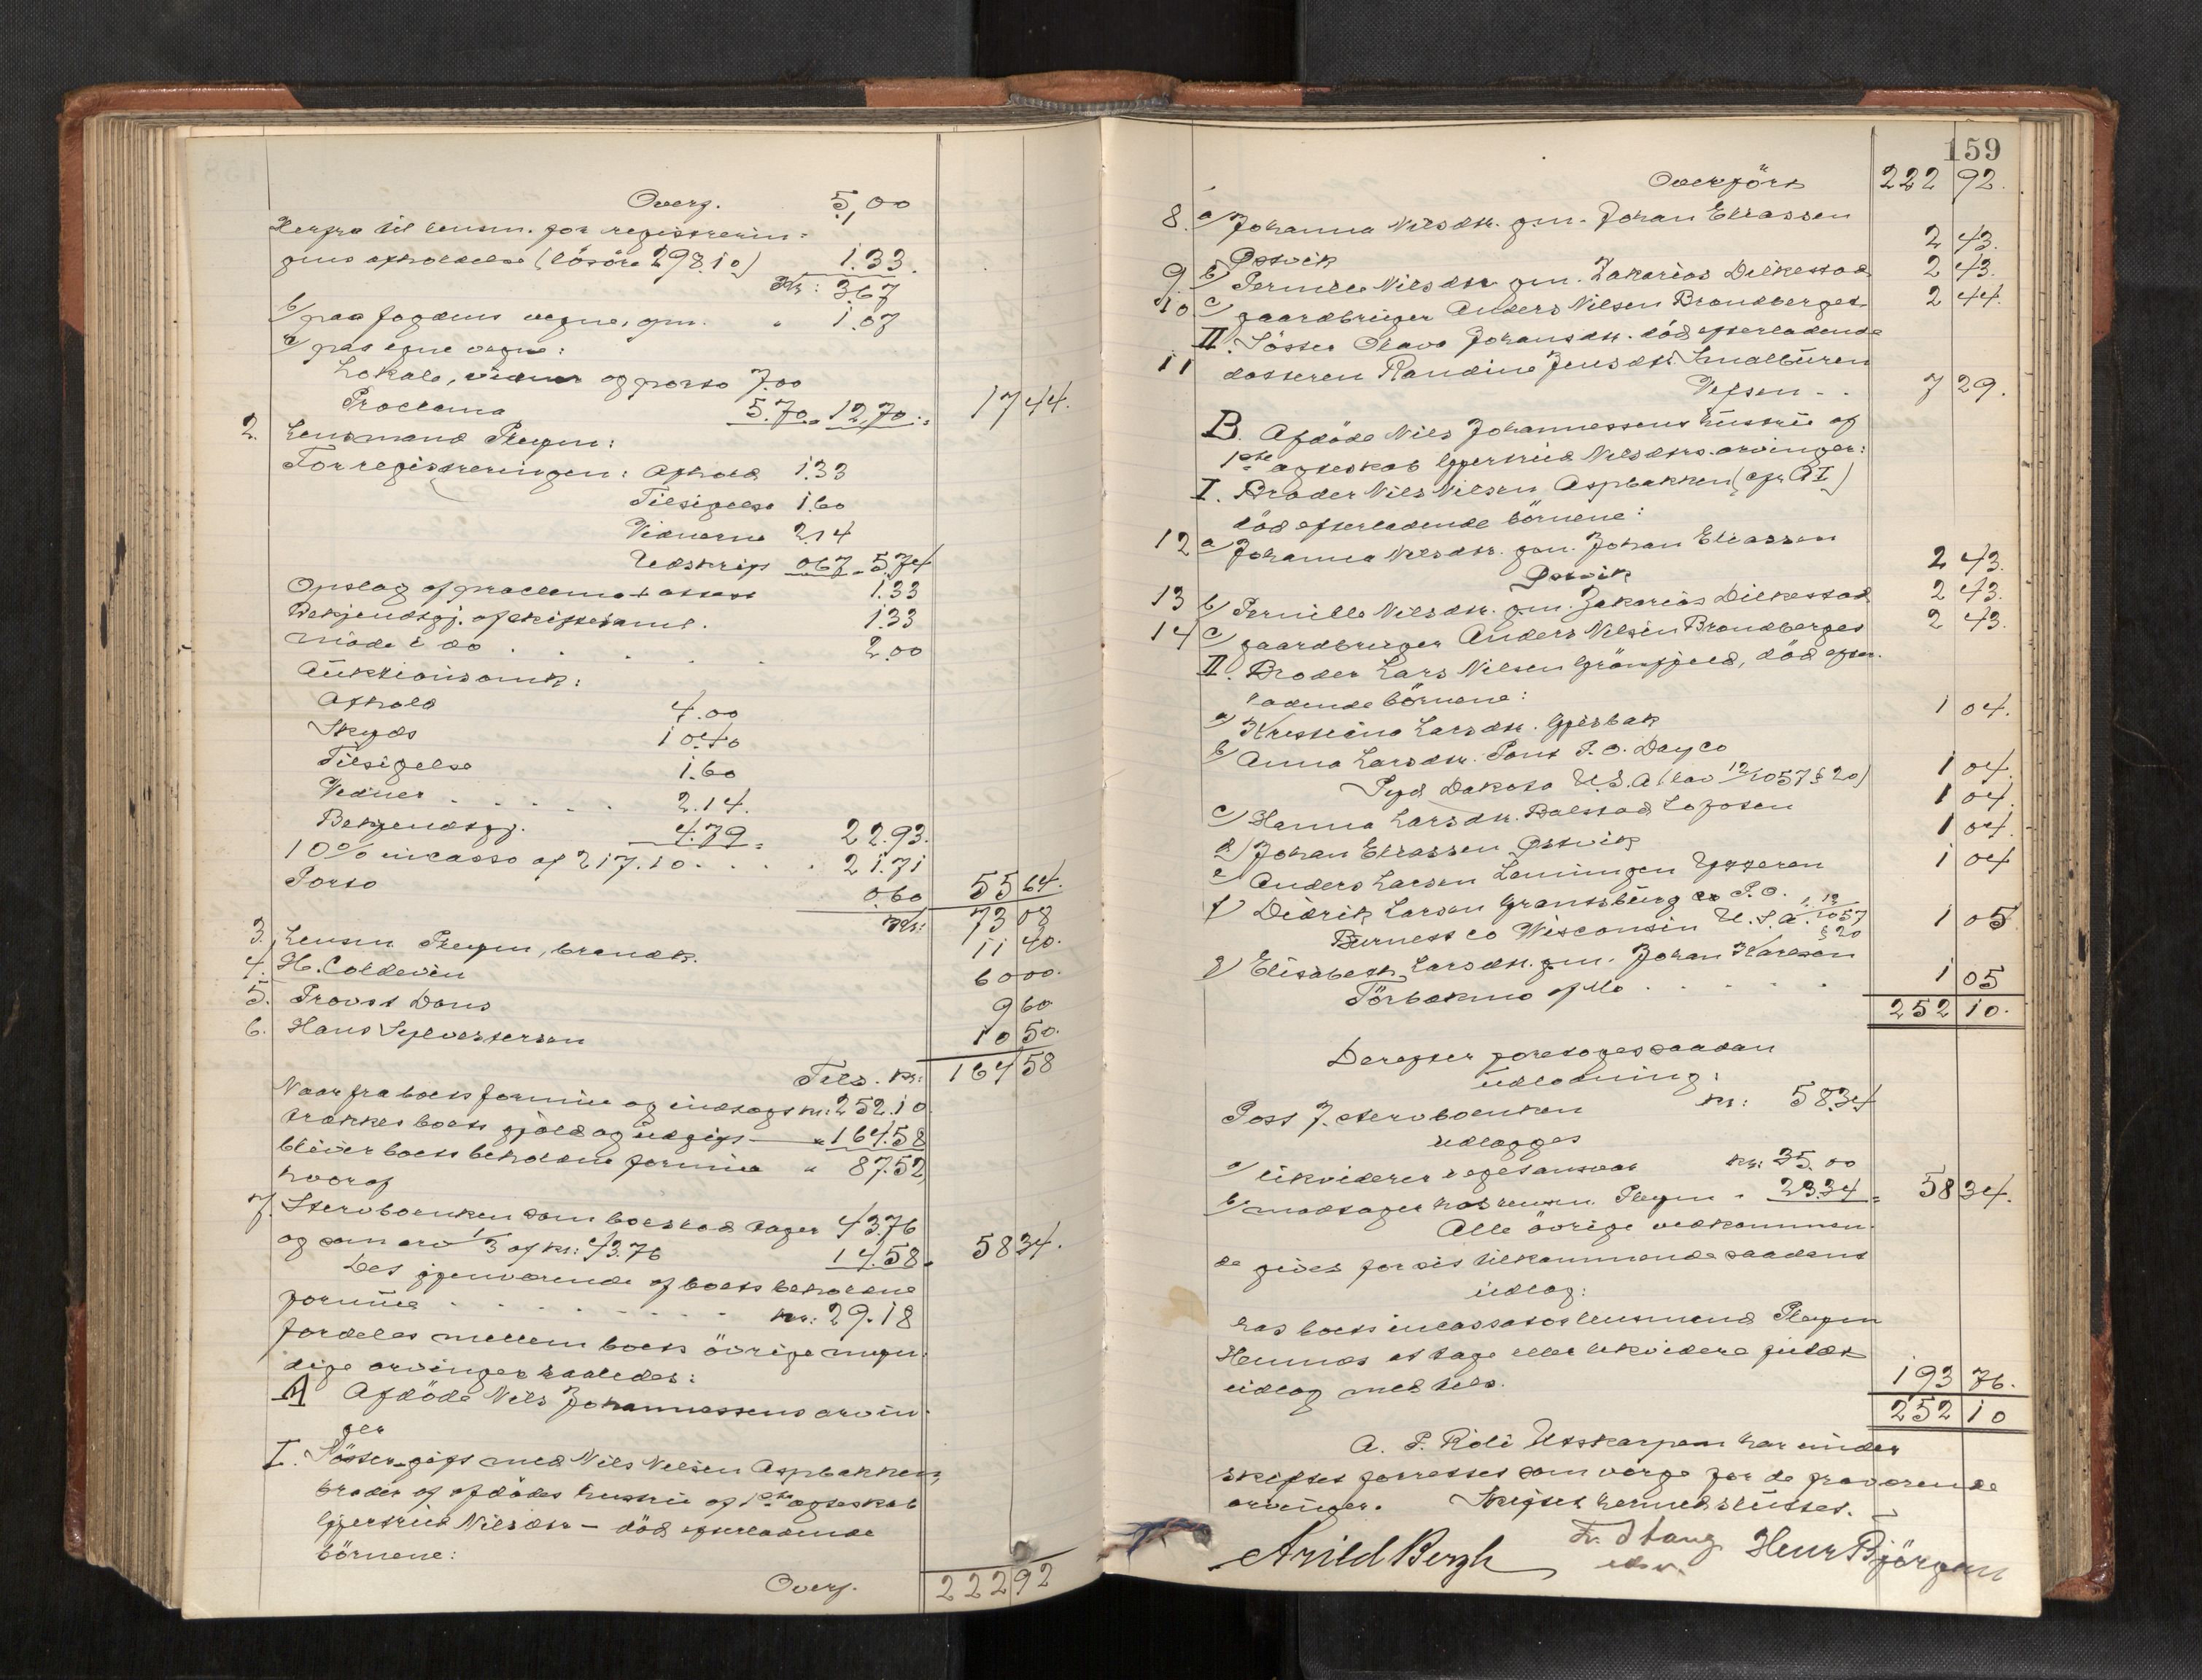 Overf. 5,00
Herfra til lensm. for registrerin-
gens afholdelse (løsøre 298.10) 1.33.
Kr: 3.67
b/ paa fogdens vegne, gm. " 1.07
c/ paa egne vegne:
Lokale, vidner og porto 7.00
Proclama 5.70 " 12.70 = 17 44.
2. Lensmand Pleym:
For registreringen: Afhold 1.33
Tilsigelse 1.60
Vidnerne 2.14
Udskrift 0.67 - 5.74
Opslag af proclama + attest 1.33
Bekjendtgj. af skiftesaml. 1.33
møde i do . . . . . 2.00
Auktionsomk:
Afhold 4.00
Skyds 10.40
Tilsigelse 1.60
Vidner . . . . . 2.14.
Bekjendtgj. 4.79 = 22.93.
10% incasso af 217.10 . . . . . 21.71
Porto 0.60 55 64.
Kr: 73 08
3. Lensm Pleym, brandk. 11 40.
4. H. Coldevin 60 00.
5. Provst Dons 9 60
6. Hans Sylvestersen 10 50.
Tils. kr: 164 58
Naar fra boets formue og indtægt kr: 252.10
trækkes boets gjæld og udgift — " 164.58
bliver boets beholdne formue " 87.52
hvoraf
7. Stervboenken som boeslod tager 43.76
og som arv 1/3 af kr: 43.76 14.58 = 58 34.
Det gjenværende af boets beholdne
formue . . . . . . . . kr: 29.18
fordeles mellem boets øvrige myn-
dige arvinger saaledes:
A Afdøde Nils Johannessens arvin-
ger
I. Søster gift med Nils Nilsen Aspbakken,
broder af afdødes hustru af 1ste ægteskab
Gjertrud Nilsdtr – død efterladende
børnene:
Overf. 222 92
159
Overført 222 92.
8. a/ Johanna Nilsdtr. gm. Johan Eliassen
Østvik 2 43.
9. b/ Pernille Nilsdtr gm. Zakarias Dilkestad 2 43.
10 c/ gaardbruger Anders Nilsen Brandberget 2 44.
II. Søster Olava Johansdtr. død efterladende
11 datteren Randine Jensdtr. Smalburen
Vefsen . . 7 29.
B. Afdøde Nils Johannessens hustru af
1ste ægteskab Gjertrud Nilsdtrs. arvinger:
I. Broder Nils Nilsen Aspbakken (cfr. A I)
død efterladende børnene:
12 a/ Johanna Nilsdtr. gm. Johan Eliassen
Østvik 2 43.
13 b/ Pernille Nilsdtr. gm. Zakarias Dilkestad 2 43.
14 c/ gaardbruger Anders Nilsen Brandberget 2 43.
II. Broder Lars Nilsen Grønfjeld, død efter-
ladende børnene:
a/ Kristiane Larsdtr. Gjesbak 1 04.
b/ Anna Larsdtr. Pont P.O. Day Co
Syd Dakota U.S.A (lov 12/10 57 § 20) 1 04.
c/ Hanna Larsdtr. Balstad Lofoten 1 04.
d/ Johan Eliassen Østvik 1 04.
e/ Anders Larsen Lanningen Ytteren 1 04
f/ Didrik Larsen Grantsburg P.O.
Burnett Co Wisconsin U.S.A. l. 12/10 57 § 20 1 05
g/ Elisabeth Larsdtr. gm. Johan Karlsen
Tørbækmo af Mo . . . . . 1 05
252 10.
Derefter foretoges saadan
udlodning:
Post 7. stervboenken kr: 58.34
udlægges
a/ likviderer eget ansvar kr: 35.00
b/ modtager hos lensm. Pleym " 23.34 = 58 34.
Alle øvrige vedkommen-
de gives for sit tilkommende saadant
udlæg:
hos boets incassator lensmand Pleym
Hemnes at tage eller likvidere gjeldt
udlæg med tils. 193 76.
252 10
A. P. Roli Utskarpen har under
skiftet fortrettet som værge for de fraværende
arvinger. Skiftet hermed sluttet.
Arild Bergh Fr. Stang Henr Bjørgan